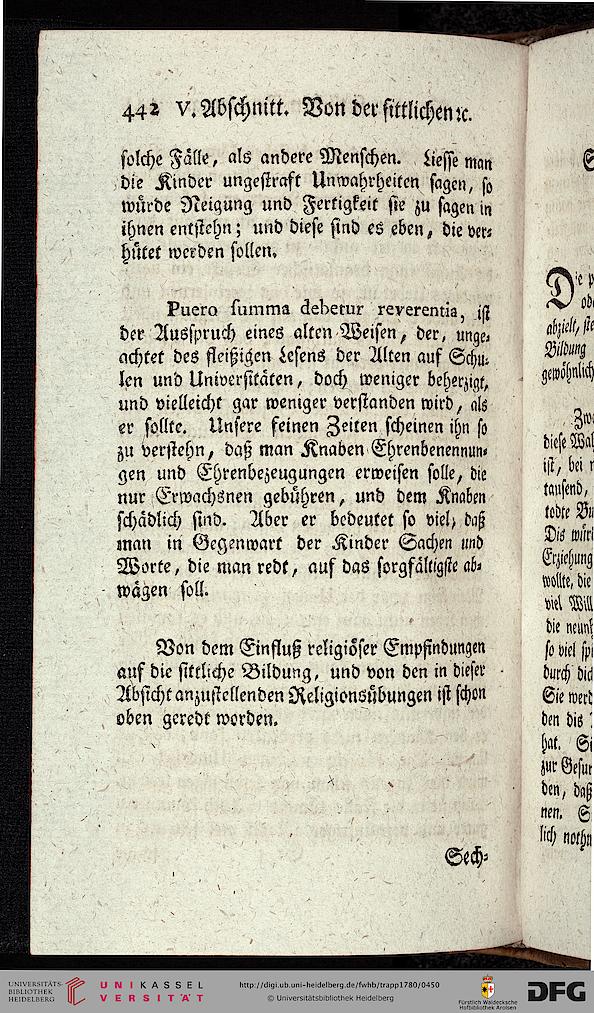 442 V. Abschnitt. Von der sittlichen ꝛc.
solche Fälle, als andere Menschen. Liesse man
die Kinder ungestraft Unwahrheiten sagen, so
würde Neigung und Fertigkeit sie zu sagen in
ihnen entstehn; und diese sind es eben, die ver⸗
hütet werden sollen.
Puero summa debetur reverentia, ist
der Ausspruch eines alten Weisen, der, unge⸗
achtet des fleißigen Lesens der Alten auf Schu⸗
len und Universitäten, doch weniger beherzigt,
und vielleicht gar weniger verstanden wird, als
er sollte. Unsere feinen Zeiten scheinen ihn so
zu verstehn, daß man Knaben Ehrenbenennun⸗
gen und Ehrenbezeugungen erweisen solle, die
nur Erwachsnen gebühren, und dem Knaben
schädlich sind. Aber er bedeutet so viel, daß
man in Gegenwart der Kinder Sachen und
Worte, die man redt, auf das sorgfältigste ab⸗
wägen soll.
Von dem Einfluß religiöser Empfindungen
auf die sittliche Bildung, und von den in dieser
Absicht anzustellenden Religionsübungen ist schon
oben geredt worden.
Sech⸗
abzielt,
Bildung
gewöhnlich
ist, bei
tausend,
Erziehung
wollte, die
die
so viel
durch
den dis
hat.
den, daß
nen.
UNIVERSITÄTS-
BIBLIOTHEK
HEIDELBERG
UNIKASSEL
VERSITÄT
http://digi.ub.uni-heidelberg.de/fwhb/trapp1780/0450
© Universitätsbibliothek Heidelberg
Fürstlich Waldecksche
Hofbibliothek Arolsen
DFG